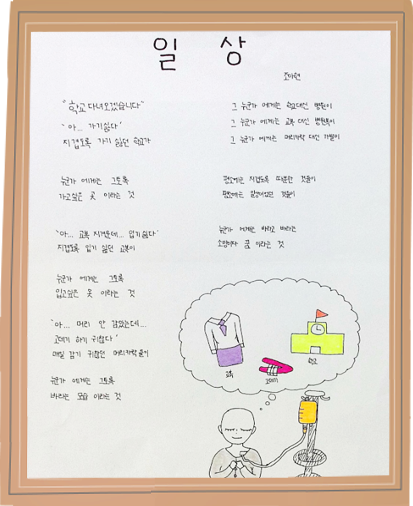 일 상
조아현
"학교 다녀오겠습니다"
'아... 가기 싫다'
지겹도록 가기 싫던 학교가
누군가 에게는 그토록
가고싶은 곳 이라는 것
'아... 교복 지겨운데... 입기 싫다'
지겹도록 입기 싫던 교복이
누군가 에게는 그토록
입고싶은 옷 이라는 것
'아... 머리 안 감았는데...
고데기 하기 귀찮다'
매일 감기 귀찮던 머리카락들이
누군가 에게는 그토록
바라는 모습 이라는 것
그 누군가 에게는 학교대신 병원이
그 누군가 에게는 교복 대신 병원복이
그 누군가 에게는 머리카락 대신 가발이
평소에는 지겹도록 따분한 것들이
평소에는 것들이
누군가 에게는 바라고 바라는
소망이자 꿈 이라는 것
교복
고데기
학교